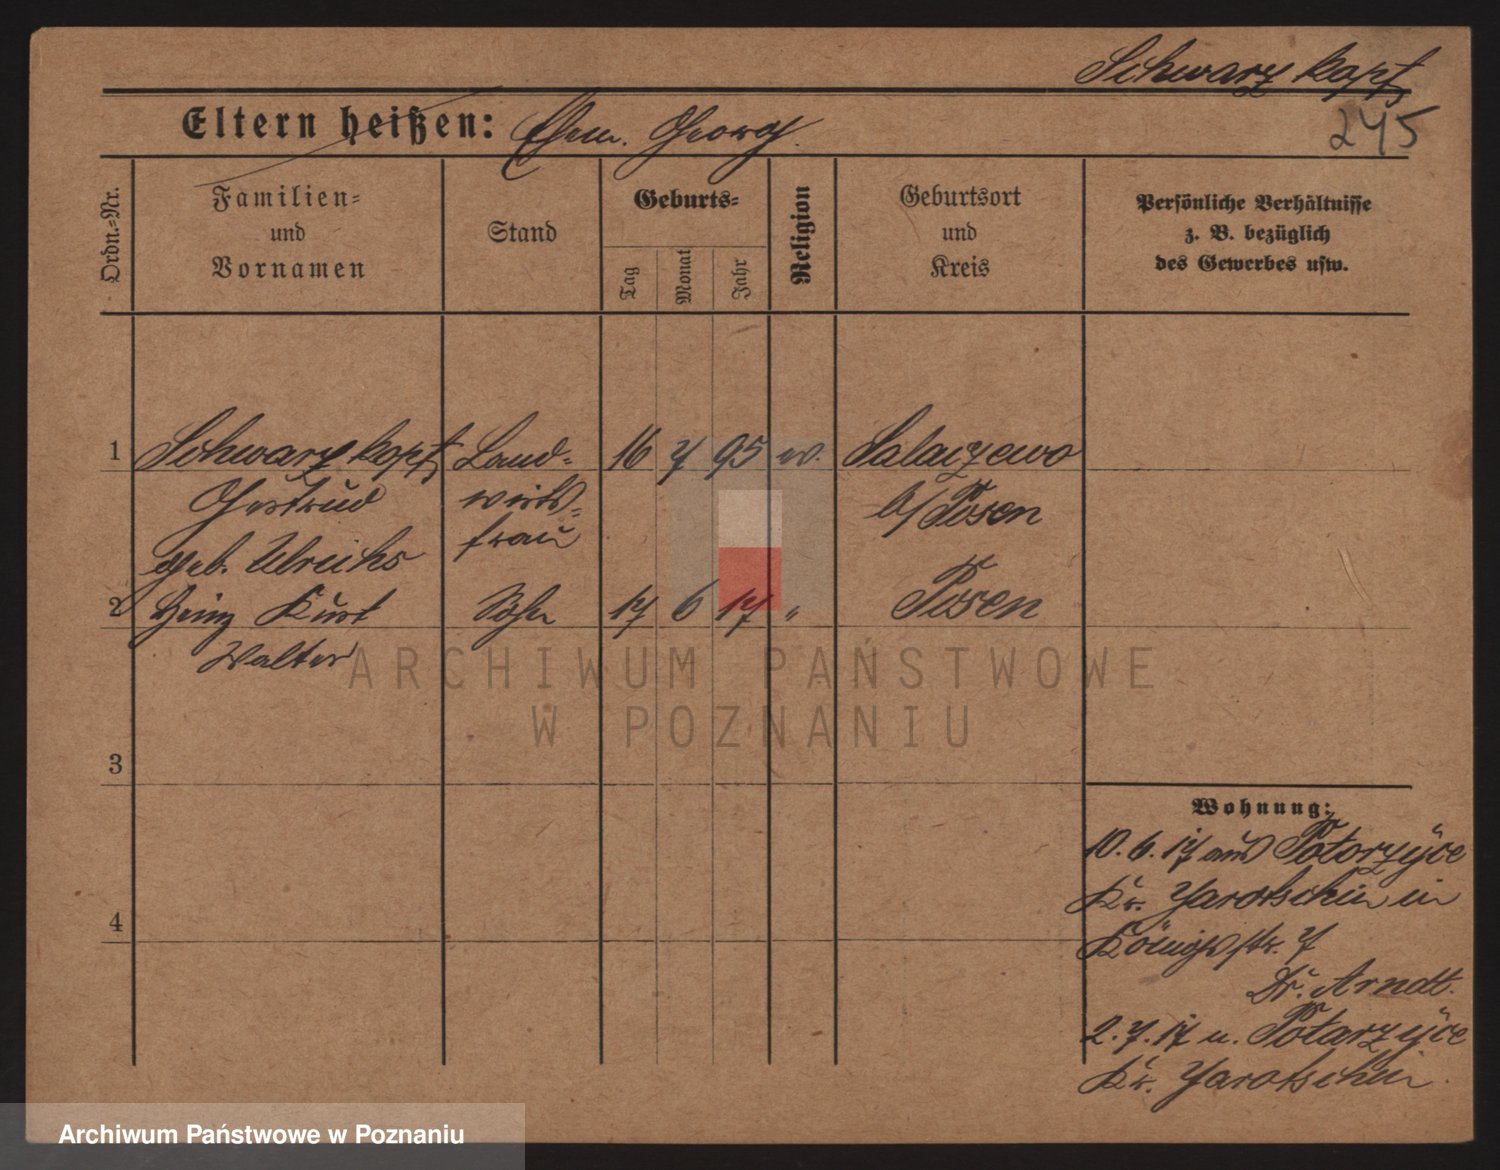 Schwarzkopf
245
Eltern heißen: Ehem. Georg.
Ordn.-Nr.
Familien-
und
Vornamen
Stand
Geburts-
Tag
Monat
Jahr
Religion
Geburtsort
und
Kreis
Persönliche Verhältnisse
z. B. bezüglich
des Gewerbes usw.
1 Schwarzkopf Land- 16 7 95 ev. Salaczewo
Gertrud wirts- b/Posen
frau
geb. Ulrichs
2 Heinz Kurt Sohn 17 6 17 " Posen
Walter
ARCHIWUM PAŃSTWOWE
W POZNANIU
3
Wohnung:
10.6.17 aus Potarzyce
Kr. Jarotschin in
4
Königstr. 7
Dr. Arndt.
2.7.17 n. Potarzyce
Kr. Jarotschin.
Archiwum Państwowe w Poznaniu